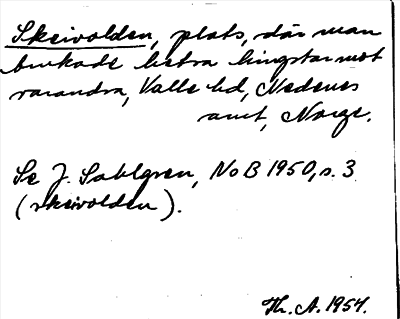 Skeivolden, plats, där man
brukade hetsa hingstar mot
varandra, Valle hd, Nedenes
amt, Norge.
Se J. Sahlgren, NoB 1950, s. 3
(skeivolden).
Th. A. 1954.